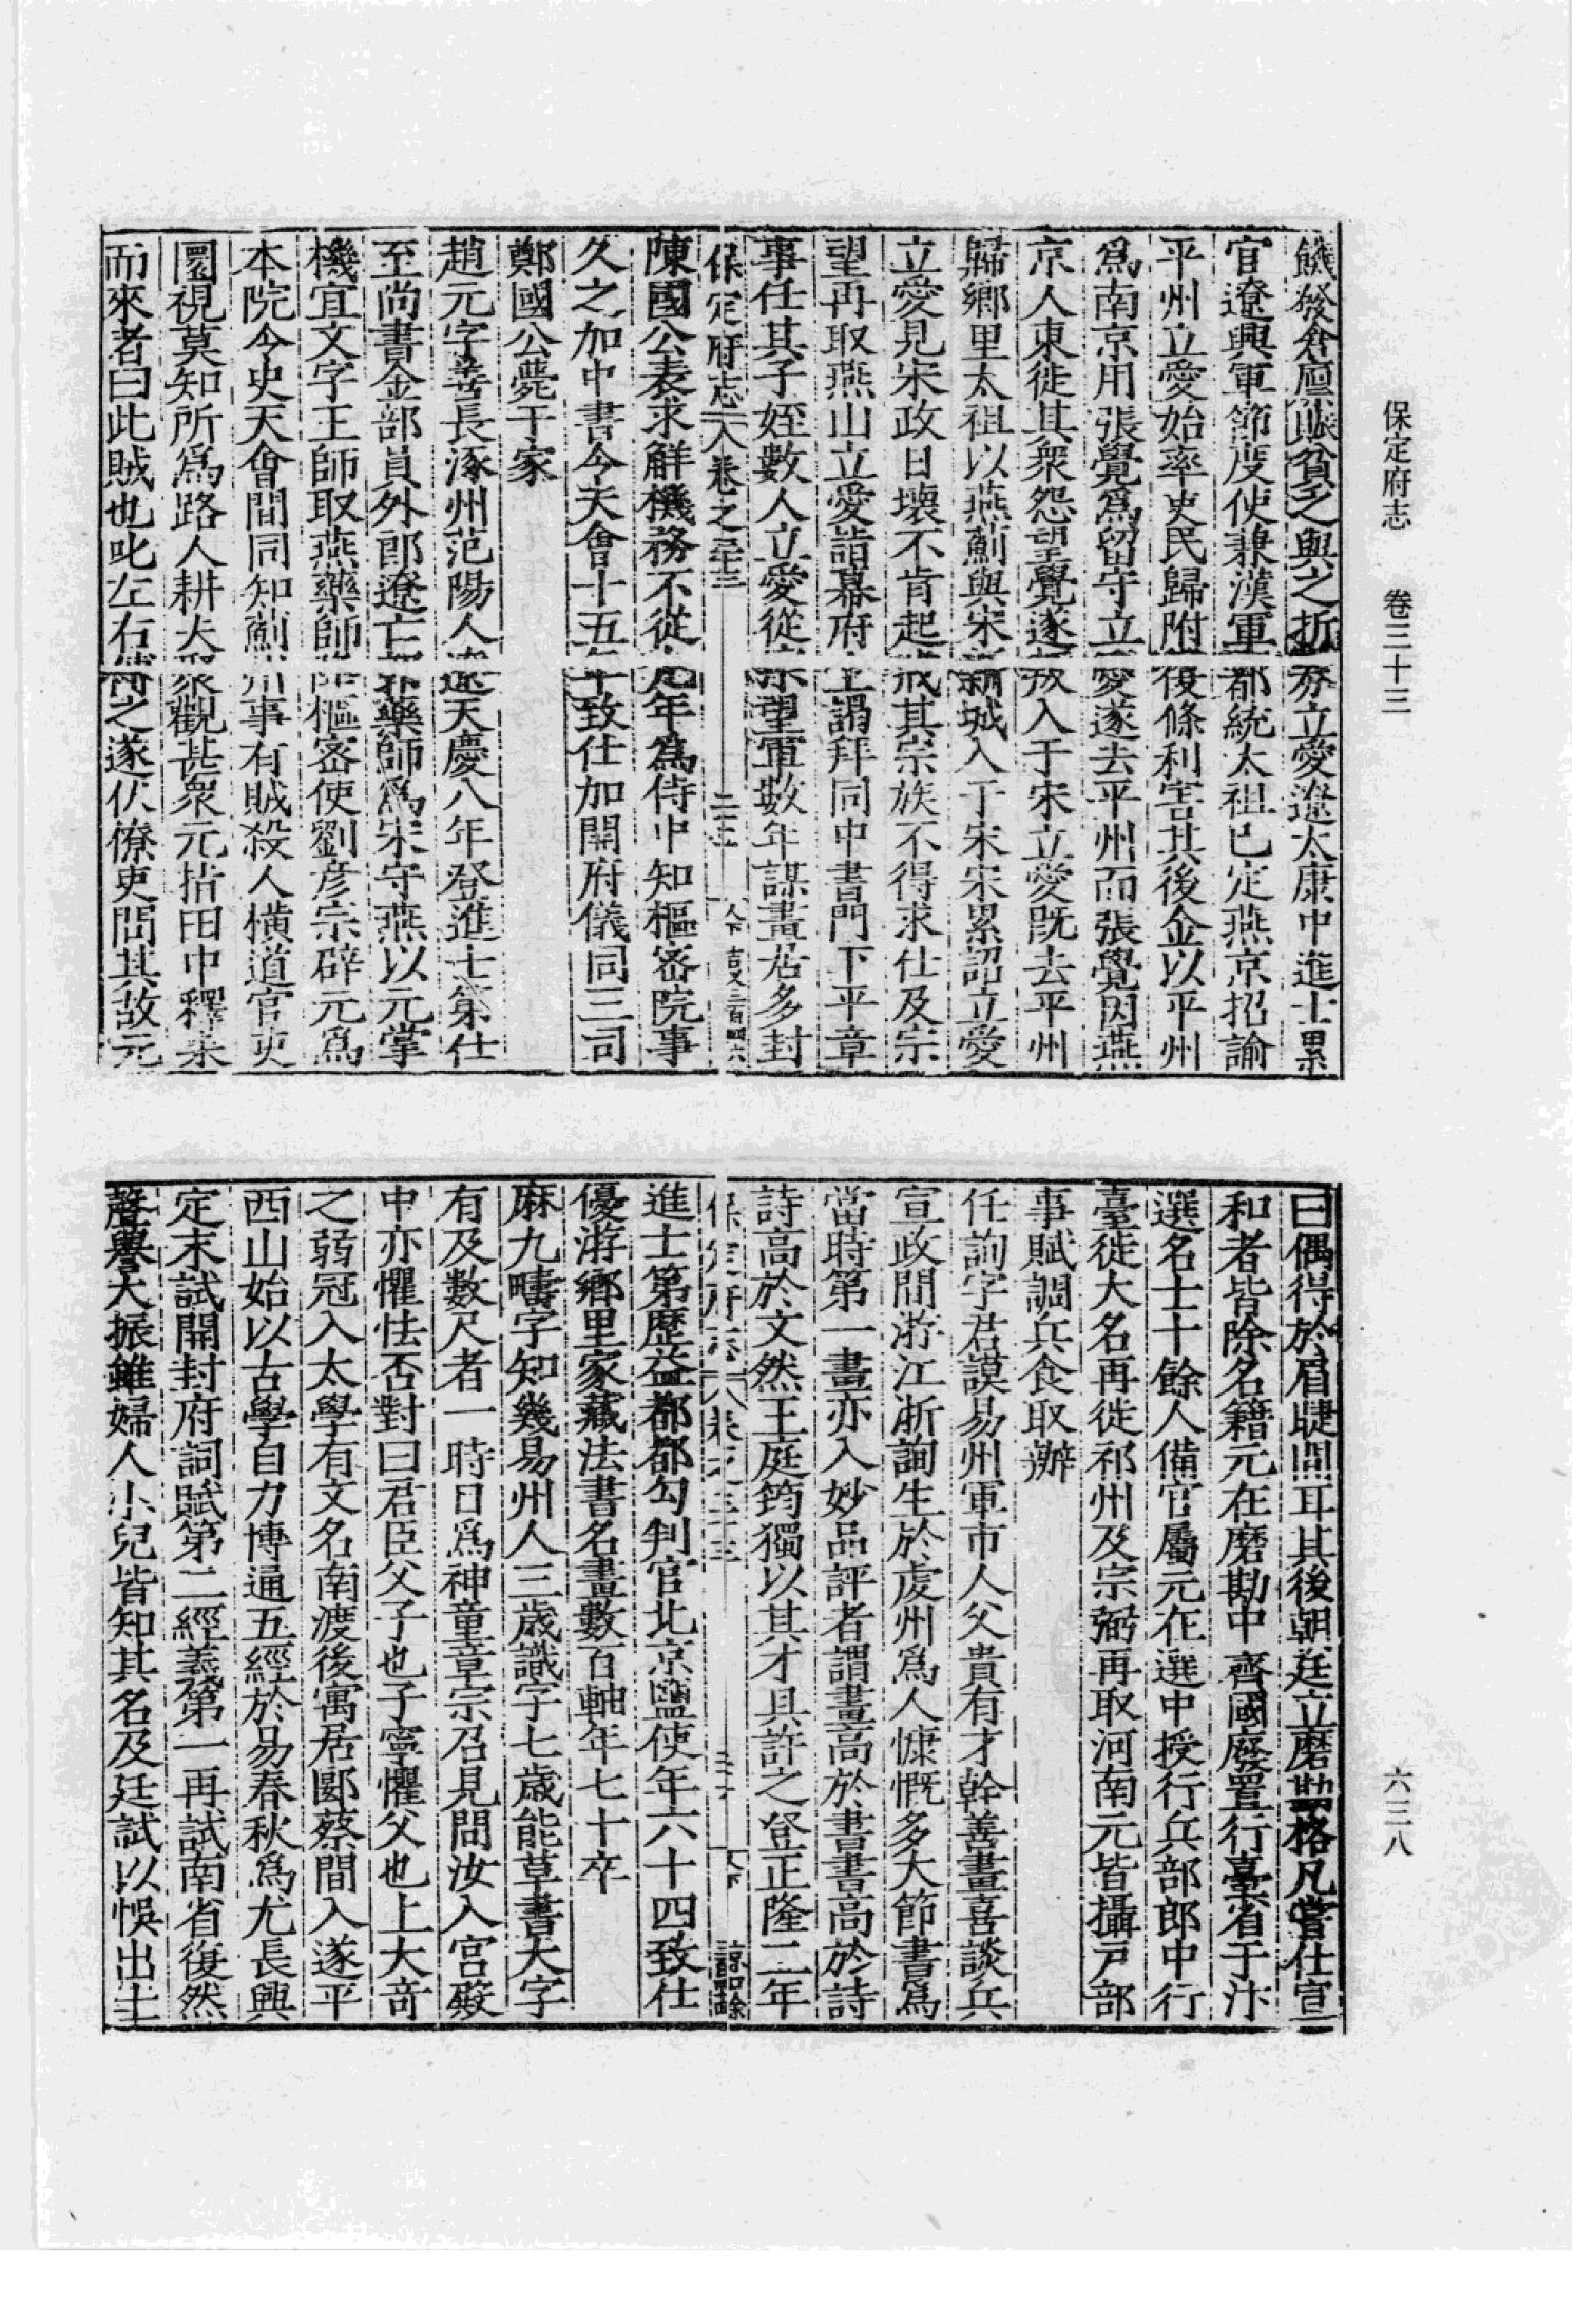 保定府志 卷三十三
六三八
饑發倉廩賑貧乏與之折券立愛遼太康中進士累
官遼興軍節度使兼漢軍都統太祖已定燕京招諭
平州立愛始率吏民歸附復條利害其後金以平州
爲南京用張覺爲留守立愛遂去平州而張覺因燕
京人東徙其衆怨望覺遂叛入于宋立愛既去平州
歸鄉里太祖以燕薊與宋新城入于宋宋累詔立愛
立愛見宋政日壞不肯起戒其宗族不得求仕及宗
望再取燕山立愛詣幕府上謁拜同中書門下平章
事任其子姪數人立愛從宗望軍數年謀畫居多封
保定府志 卷之三十三
陳國公表求解機務不從九年爲侍中知樞密院事
久之加中書令天會十五年致仕加開府儀同三司
鄭國公薨于家
趙元字善長涿州范陽人遼天慶八年登進士第仕
至尚書金部員外郎遼亡郭藥師爲宋守燕以元掌
機宜文字王師取燕藥師降樞密使劉彦宗辟元爲
本院令史天會間同知薊州事有賊殺人橫道官吏
圜視莫知所爲路人耕夫聚觀甚衆元指田中釋耒
而來者曰此賊也叱左右縛之遂伏僚吏問其故元
曰偶得於眉睫間耳其後朝廷立磨勘格凡嘗仕宣
和者皆除名籍元在磨勘中齊國廢置行臺省于汴
選名士十餘人備官屬元在選中授行兵部郎中行
臺徙大名再徙祁州及宗弼再取河南元皆攝戸部
事賦調兵食取辦
任詢字君謨易州軍市人父貴有才幹善畫喜談兵
宣政間游江浙詢生於虔州爲人慷慨多大節書爲
當時第一畫亦入妙品評者謂畫高於書書高於詩
詩高於文然王庭筠獨以其才具許之登正隆二年
保定府志 卷之三十三
進士第歷益都都勾判官北京鹽使年六十四致仕
優游鄉里家藏法書名畫數百軸年七十卒
麻九疇字知幾易州人三歲識字七歲能草書大字
有及數尺者一時目爲神童章宗召見問汝入宮殿
中亦懼怯否對曰君臣父子也子寧懼父也上大奇
之弱冠入太學有文名南渡後寓居郾蔡間入遂平
西山始以古學自力博通五經於易春秋爲尤長興
定末試開封府詞賦第二經義第一再試南省復然
聲譽大振雖婦人小兒皆知其名及廷試以悞出士